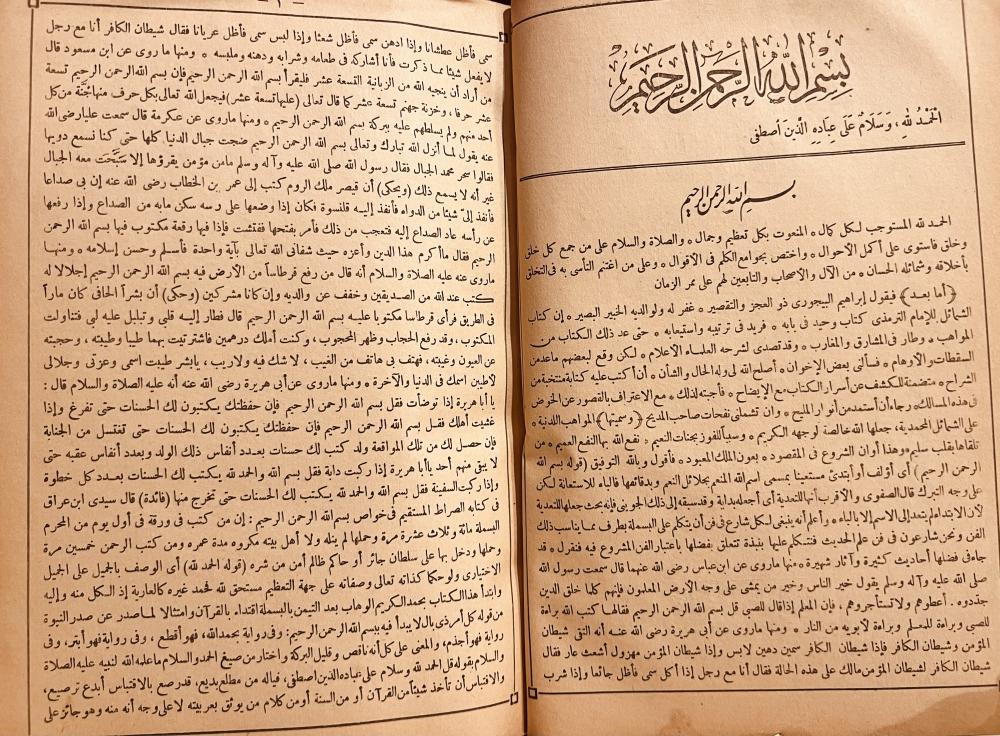 بِسْمِ اللهِ الرَّحْمٰنِ الرَّحِيْمِ
اَلْحَمْدُ لِلّٰهِ، وَسَلَامٌ عَلَى عِبَادِهِ الَّذِينَ اصْطَفَى
بسم الله الرحمن الرحيم
الحمد لله المستوجب لكل كمال ۞ المنعوت بكل تعظيم وجمال ۞ والصلاة والسلام على من جمع كل خلق
وخلق فاستوى على أكمل الأحوال ۞ واختص بجوامع الكلم فى الأقوال ۞ وعلى من اغتنم التأسى به فى التخلق
بأخلاقه وشمائله الحسان ۞ من الآل والأصحاب والتابعين لهم على ممر الزمان
﴿أما بعد﴾ فيقول إبراهيم البيجورى ذو العجز والتقصير ۞ غفر له ولوالديه الخبير البصير ۞ إن كتاب
الشمائل للإمام الترمذى كتاب وحيد فى بابه ۞ فريد فى ترتيبه واستيعابه ۞ حتى عد ذلك الكتاب من
المواهب ۞ وطار فى المشارق والمغارب ۞ وقد تصدى لشرحه العلماء الأعلام ۞ لكن وقع لبعضهم ماعد من
السقطات والأوهام ۞ فسألنى بعض الإخوان ۞ أصلح الله لى وله الحال والشأن ۞ أن أكتب عليه كتابة منتخبة من
الشراح ۞ متضمنة للكشف عن أسرار الكتاب مع الإيضاح ۞ فأجبته لذلك ۞ مع الاعتراف بالقصور عن الخوض
فى هذه المسالك ۞ رجاء أن أستمد من أنوار المليح ۞ وأن تشملنى نفحات صاحب المديح ﴿وسميتها﴾ المواهب اللدنية ۞
على الشمائل المحمدية، جعلها الله خالصة لوجهه الكريم ۞ وسبباً للفوز بجنات النعيم، نفع الله بها النفع العميم ۞ من
تلقاها بقلب سليم ۞ وهذا أوان الشروع فى المقصود ۞ بعون الملك المعبود ۞ فأقول وبالله التوفيق (قوله بسم الله
الرحمن الرحيم) أى أؤلف أو أبتدئ مستعينا بمسمى اسم الله المنعم بجلائل النعم وبدقائقها فالباء للاستعانة لكن
على وجه التبرك قال الصفوى والأقرب أنها للتعدية أى أجعله بداية وقد سبقه إلى ذلك الجوينى فإنه بحث جعلها للتعدية
لأن الابتداء لم يتعد إلى الاسم إلا بالباء ۞ وأعلم أنه ينبغى لكل شارع فى فن أن يتكلم على البسملة بطرف مما يناسب ذلك
الفن ونحن شارعون فى فن علم الحديث فنتكلم عليها بنبذة تتعلق بفضلها باعتبار الفن المشروع فيه فنقول ۞ قد
جاء فى فضلها أحاديث كثيرة وآثار شهيرة ۞ منها ماروى عن ابن عباس رضى الله عنهما قال سمعت رسول الله
صلى الله عليه وآله وسلم يقول خير الناس وخير من يمشى على وجه الأرض المعلمون فإنهم كلما خلق الدين
جددوه. أعطوهم ولا تستأجروهم، فإن المعلم إذا قال للصبى قل بسم الله الرحمن الرحيم فقالها كتب الله براءة
للصبى وبراءة للمعلم وبراءة لأبويه من النار ۞ ومنها ماروى عن أبى هريرة رضى الله عنه أنه التقى شيطان
المؤمن وشيطان الكافر فإذا شيطان الكافر سمين دهين لابس وإذا شيطان المؤمن مهزول أشعث عار فقال
شيطان الكافر لشيطان المؤمن مالك على هذه الحالة فقال أنا مع رجل إذا أكل سمى فأظل جائعا وإذا شرب
سمى فأظل عطشانا وإذا ادهن سمى فأظل شعثا وإذا لبس سمى فأظل عريانا فقال شيطان الكافر أنا مع رجل
لا يفعل شيئا مما ذكرت فأنا أشاركه فى طعامه وشرابه ودهنه وملبسه ۞ ومنها ما روى عن ابن مسعود قال
من أراد أن ينجيه الله من الزبانية التسعة عشر فليقرأ بسم الله الرحمن الرحيم فإن بسم الله الرحمن الرحيم تسعة
عشر حرفا، وخزنة جهنم تسعة عشر كما قال تعالى (عليها تسعة عشر) فيجعل الله تعالى بكل حرف منها جُنَّة من كل
أحد منهم ولم يسلطهم عليه ببركة بسم الله الرحمن الرحيم ۞ ومنها ماروى عن عكرمة قال سمعت عليا رضى الله
عنه يقول لما أنزل الله تبارك وتعالى بسم الله الرحمن الرحيم ضجت جبال الدنيا كلها حتى كنا نسمع دويها
فقالوا سحر محمد الجبال فقال رسول الله صلى الله عليه وآله وسلم مامن مؤمن يقرؤها إلا سَبَّحَت معه الجبال
غير أنه لا يسمع ذلك (ويحكى) أن قيصر ملك الروم كتب إلى عمر بن الخطاب رضى الله عنه إن بى صداعا
فأنفذ إلىّ شيئا من الدواء فأنفذ إليه قلنسوة فكان إذا وضعها على رسه سكن مابه من الصداع وإذا رفعها
عن رأسه عاد الصداع إليه فتعجب من ذلك فأمر بفتحها ففتشت فإذا فيها رقعة مكتوب فيها بسم الله الرحمن
الرحيم فقال ماأكرم هذا الدين وأعزه حيث شفانى الله تعالى بآية واحدة فأسلم وحسن إسلامه ۞ ومنها
ماروى عنه عليه الصلاة والسلام أنه قال من رفع قرطاسا من الأرض فيه بسم الله الرحمن الرحيم إجلالا له
كتب عند الله من الصديقين وخفف عن والديه وإن كانا مشركين (وحكى) أن بشراً الحافى كان ماراً
فى الطريق فرأى قرطاسا مكتوبا عليه بسم الله الرحمن الرحيم قال فطار إليه قلبى وتبلبل عليه لبى فتناولت
المكتوب، وقد رفع الحجاب وظهر المحجوب، وكنت أملك درهمين فاشتريت بهما طيبا وطيبته، وحجبته
عن العيون وغيبته، فهتف بى هاتف من الغيب، لا شك فيه ولا ريب، يابشر طيبت اسمى وعزتى وجلالى
لأطيبن اسمك فى الدنيا والآخرة ۞ ومنها ماروى عن أبى هريرة رضى الله عنه أنه عليه الصلاة والسلام قال:
يا أبا هريرة إذا توضأت فقل بسم الله الرحمن الرحيم فإن حفظتك يكتبون لك الحسنات حتى تفرغ وإذا
غشيت أهلك فقل بسم الله الرحمن الرحيم فإن حفظتك يكتبون لك الحسنات حتى تغتسل من الجنابة
فإن حصل لك من تلك المواقعة ولد كتب لك حسنات بعدد أنفاس ذلك الولد وبعدد أنفاس عقبه حتى
لا يبقى منهم أحد ياأبا هريرة إذا ركبت دابة فقل بسم الله والحمد لله يكتب لك الحسنات بعدد كل خطوة
وإذا ركبت السفينة فقل بسم الله والحمد لله يكتب لك الحسنات حتى تخرج منها (فائدة) قال سيدى ابن عراق
فى كتابه الصراط المستقيم فى خواص بسم الله الرحمن الرحيم: إن من كتب فى ورقة فى أول يوم من المحرم
البسملة مائة وثلاث عشرة مرة وحملها لم ينله ولا أهل بيته مكروه مدة عمره ومن كتب الرحمن خمسين مرة
وحملها ودخل بها على سلطان جائر أو حاكم ظالم أمن من شره (قوله الحمد لله) أى الوصف بالجميل على الجميل
الاختيارى ولو حكما كذاته تعالى وصفاته على جهة التعظيم مستحق لله فحمد غيره كالعارية إذ الكل منه وإليه
وابتدأ هذا الكتاب بحمد الكريم الوهاب بعد التيمن بالبسملة اقتداء بالقرآن وامتثالا لما صدر عن صدر النبوة
من قوله كل أمر ذى بال لا يبدأ فيه ببسم الله الرحمن الرحيم: وفى رواية بحمد الله، فهو أقطع، وفى رواية فهو أبتر، وفى
رواية فهو أجذم، والمعنى على كل أنه ناقص وقليل البركة واختار من صيغ الحمد والسلام ماعلمه الله لنبيه عليه الصلاة
والسلام بقوله قل الحمد لله وسلام على عباده الذين اصطفى، فياله من مطلع بديع، قد رصع بالاقتباس أبدع ترصيع،
والاقتباس أن تأخذ شيئا من القرآن أو من السنة أو من كلام من يوثق بعربيته لا على وجه أنه منه وهو جائز على